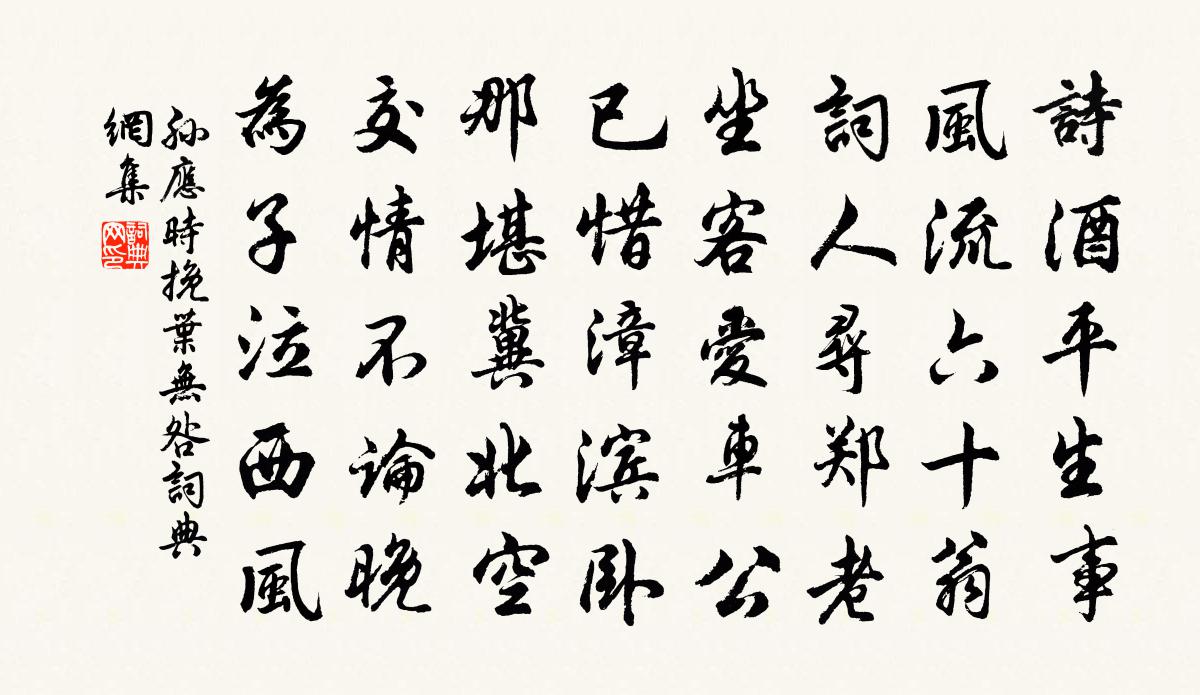 詩酒平生事
風流六十翁
詞人尋郑老
坐客愛車公
已惜漳滨卧
那堪冀北空
交情不論晚
為子泣西風
孫應時挽葉無咎詞典
網集
詞典网印